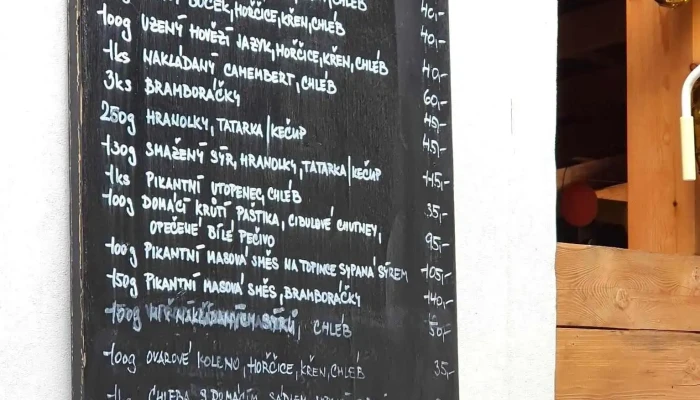 BŮČEK, HOŘČICE, KŘEN, CHLÉB 40,-
100g UZENÝ HOVĚZÍ JAZYK, HOŘČICE, KŘEN, CHLÉB 40,-
1ks NAKLÁDANÝ CAMEMBERT, CHLÉB 60,-
3ks BRAMBORÁČKY 45,-
250g HRANOLKY, TATARKA/KEČUP 45,-
130g SMAŽENÝ SÝR, HRANOLKY, TATARKA/KEČUP 115,-
1ks PIKANTNÍ UTOPENEC, CHLÉB 35,-
100g DOMÁCÍ KRŮTÍ PASTIKA, CIBULOVÉ CHUTNEY,
OPEČENÉ BÍLÉ PEČIVO 95,-
100g PIKANTNÍ MASOVÁ SMĚS NA TOPINCE SYPANÁ SÝREM 105,-
150g PIKANTNÍ MASOVÁ SMĚS, BRAMBORÁČKY 140,-
150g MIX NAKLÁDANÝCH SÝRŮ, CHLÉB 50,-
100g OVAROVÉ KOLENO, HOŘČICE, KŘEN, CHLÉB 35,-
CHLEBA S DOMÁCÍM SÁDLEM